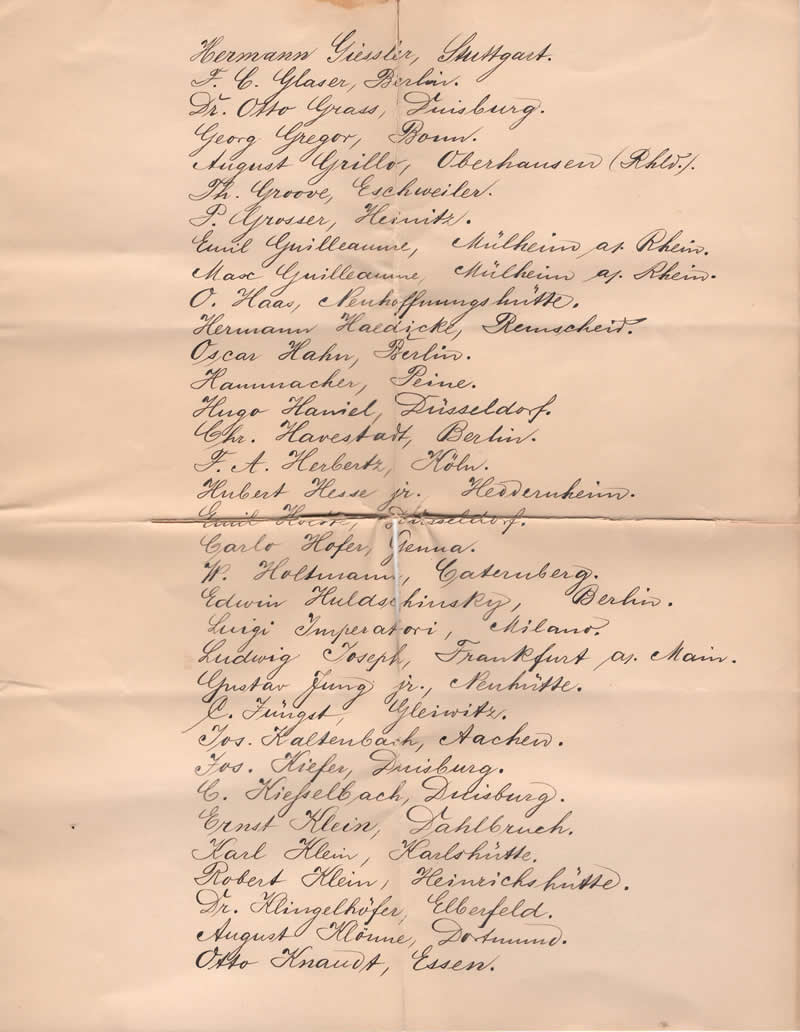 Hermann Giessler, Stuttgart.
F. C. Glaser, Berlin.
Dr. Otto Grass, Duisburg.
Georg Gregor, Bonn.
August Grillo, Oberhausen (Rhld.).
Th. Groove, Eschweiler.
P. Grosser, Heinitz.
Emil Guilleaume, Mülheim a/. Rhein.
Max Guilleaume, Mülheim a/. Rhein.
O. Haas, Neuhoffnungshütte.
Hermann Haedicke, Remscheid.
Oscar Hahn, Berlin.
Hammacher, Peine.
Hugo Haniel, Düsseldorf.
Chr. Havestadt, Berlin.
F. A. Herbertz, Köln.
Hubert Hesse jr. Heddernheim.
Emil Düsseldorf.
Carlo Hofer, Genua.
W. Holtmann, Caternberg.
Edwin Huldschinsky, Berlin.
Luigi Imperatori, Milano.
Ludwig Joseph, Frankfurt a/. Main.
Gustav Jung jr., Neuhütte.
C. Jüngst, Gleiwitz.
Jos. Kaltenbach, Aachen.
Jos. Kiefer, Duisburg.
C. Kiesselbach, Duisburg.
Ernst Klein, Dahlbruch.
Karl Klein, Karlshütte.
Robert Klein, Heinrichshütte.
Dr. Klingelhöfer, Elberfeld.
August Klönne, Dortmund.
Otto Knaudt, Essen.